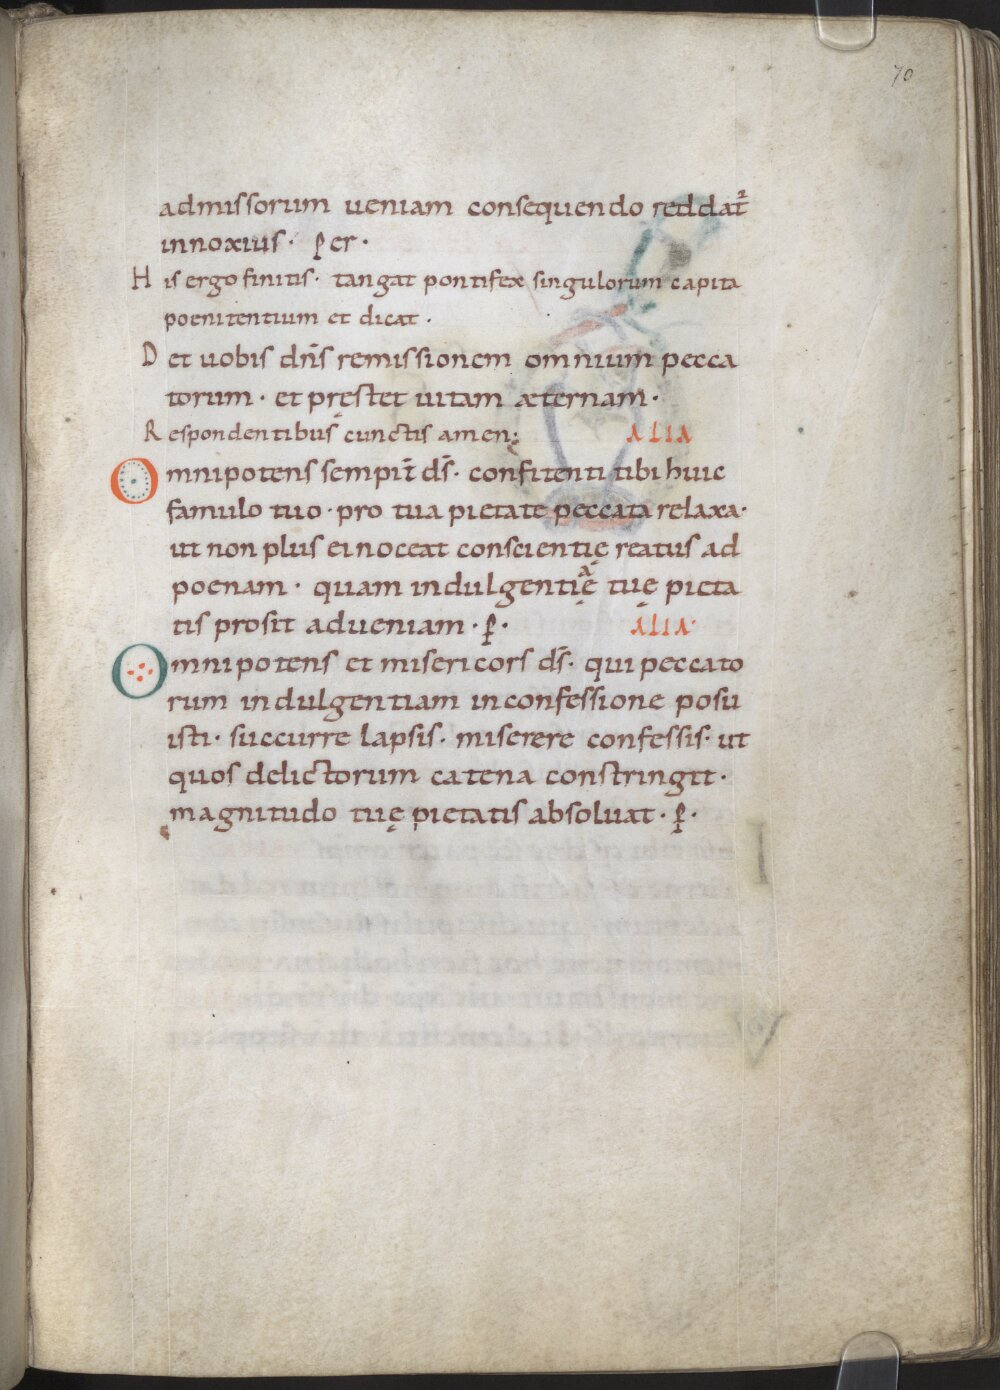 70
admissorum ueniam consequendo reddat᷑
innoxius· per·
His ergo finitis· tangat pontifex singulorum capita
poenitentium et dicat·
Det uobis dn̄s remissionem omnium pecca
torum· et pręstet uitam æternam·
Respondentibus cunctis amen; ALIA
Omnipotens sempit̄ ds̄· confitenti tibi huic
famulo tuo· pro tua pietate peccata relaxa·
ut non plus ei noceat conscientię reatus ad
poenam· quam indulgentię^a tuę pieta
tis prosit adueniam· p̱· ALIA·
Omnipotens et misericors ds̄· qui peccato
rum indulgentiam inconfessione posu
isti· succurre lapsis· miserere confessis· ut
quos delictorum catena constringit·
magnitudo tuę pietatis absoluat· p̱·